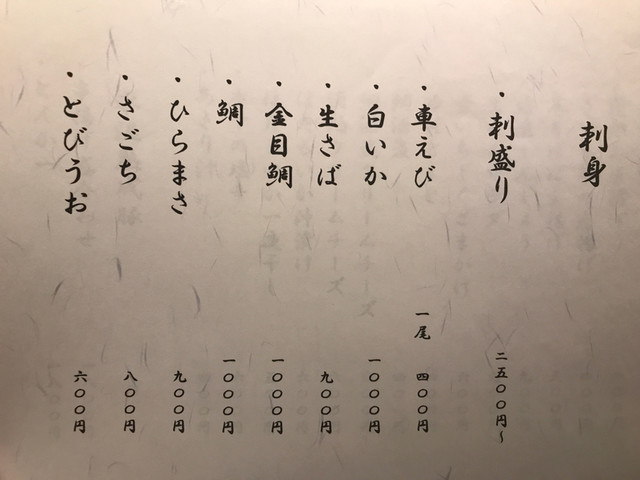 刺身
・刺盛り 二五〇〇円～
・車えび 一尾 四〇〇円
・白いか 一〇〇〇円
・生さば 九〇〇円
・金目鯛 一〇〇〇円
・鯛 一〇〇〇円
・ひらまさ 九〇〇円
・さごち 八〇〇円
・とびうお 六〇〇円